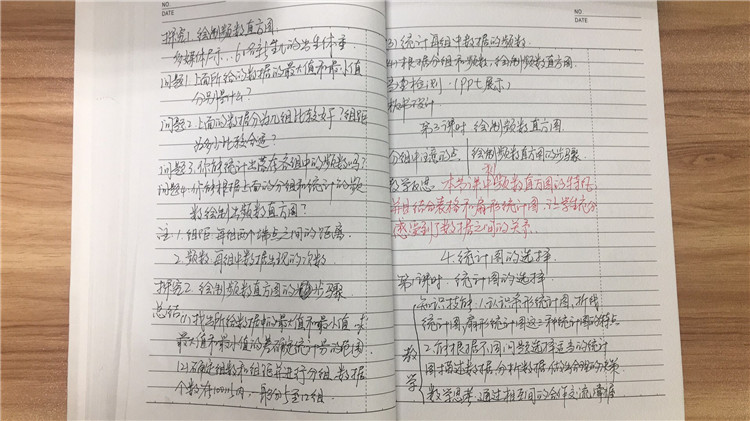 NO.
DATE
探究1.绘制频数直方图.
多媒体展示…60名新生儿的出生体重
问题1.上面所给的数据的最大值和最小值
分别是什么?
问题2.上面的数据分为几组比较好?组距
为多少比较合适?
问题3.你能统计出落在各组中的频数吗?
问题4.你能根据上面的分组和统计的频
数绘制出频数直方图?
注:1.组距:每组两个端点之间的距离.
2.频数:每组中数据出现的次数
探究2.绘制频数直方图的步骤
总结:(1)找出所给数据中的最大值和最小值,求
最大值和最小值的差确定统计量的范围
(2)确定组数和组距并进行分组.数据
个数在100以内,一般分5至12组.
NO.
DATE
(3)统计每组中数据的频数
(4)根据分组和频数,绘制频数直方图.
检测.(PPt展示)
板书设计
第3课时 绘制频数直方图.
分组中注意的点 绘制频数直方图的步骤
教学反思 本节课中频数直方图的特征
并且结合表格和扇形统计图.让学生充分
感受到了数据之间的关系.
4.统计图的选择
第1课时.统计图的选择
知识技能:1.认识条形统计图、折线
统计图,扇形统计图这三种统计图的特点
教 2.能根据不同问题选择适当的统计
图描述数据,分析数据,作出合理的决策
学 数学思考:通过相互间的合作交流,